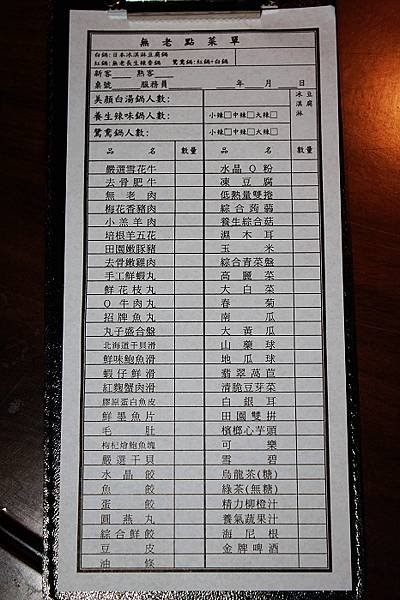 無老點菜單
白鍋:日本冰淇淋豆腐鍋
紅鍋:無老長生辣香鍋 鴛鴦鍋:紅鍋+白鍋
新客 熟客
桌號 服務員 年 月 日
美顏白湯鍋人數: 冰淇淋 豆腐
養生辣味鍋人數: 小辣□中辣□大辣□
鴛鴦鍋人數: 小辣□中辣□大辣□
品名 數量 品名 數量
嚴選雪花牛 水晶Q粉
去骨肥牛 凍豆腐
無老肉 低熱量雙捲
梅花香豬肉 綜合蒟蒻
小羔羊肉 養生綜合菇
培根羊五花 濕木耳
田園嫩豚豬 玉米
去骨嫩雞肉 綜合青菜盤
手工鮮蝦丸 高麗菜
鮮花枝丸 大白菜
Q牛肉丸 春菊
招牌魚丸 南瓜
丸子盛合盤 大黃瓜
北海道干貝滑 山藥球
鮮味鮑魚滑 地瓜球
蝦仔鮮滑 翡翠萵苣
紅麴蟹肉滑 清脆豆芽菜
膠原蛋白魚皮 白銀耳
鮮墨魚片 田園雙拼
毛肚 檳榔心芋頭
枸杞燴鮑魚塊 可樂
嚴選干貝 雪碧
水晶餃 烏龍茶(糖)
魚餃 綠茶(無糖)
蛋餃 精力柳橙汁
圓燕丸 養氣蔬果汁
綜合鮮餃 海尼根
豆皮 金牌啤酒
油條